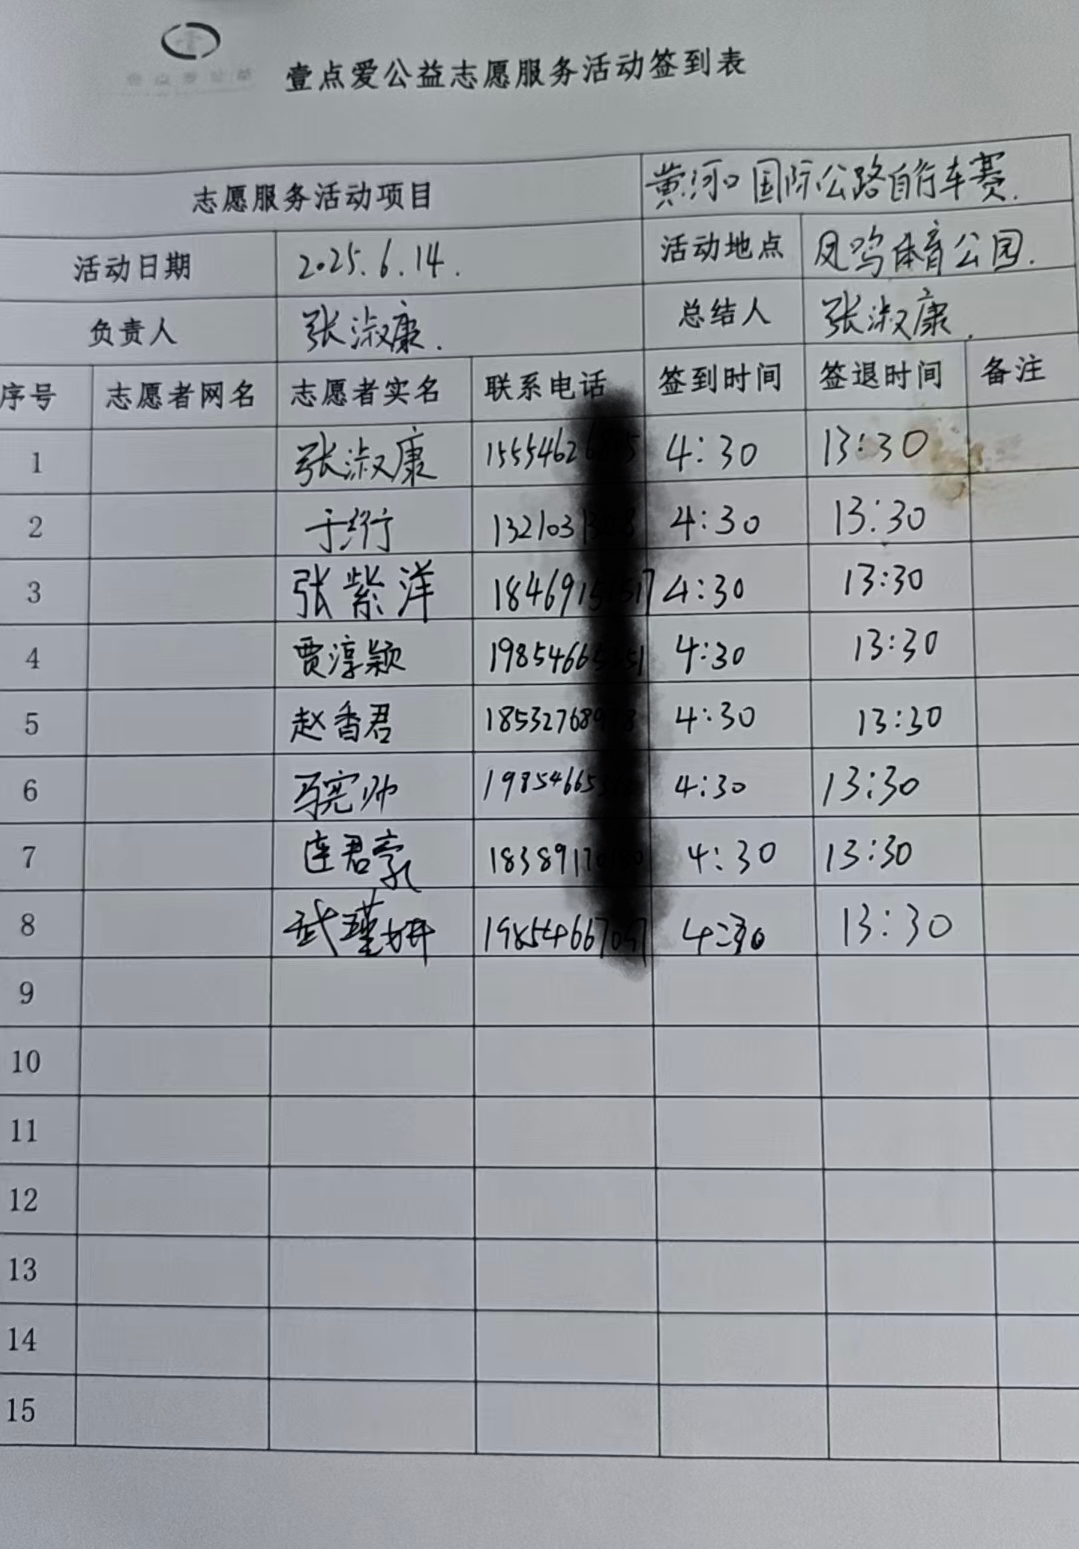 壹点爱公益志愿服务活动签到表
志愿服务活动项目 黄河口国际公路自行车赛.
活动日期 2025.6.14. 活动地点 凤鸣体育公园.
负责人 张淑康. 总结人 张淑康.
序号 志愿者网名 志愿者实名 联系电话 签到时间 签退时间 备注
1 张淑康 1555462 4:30 13:30
2 于衍 1321031 4:30 13:30
3 张紫洋 184691 4:30 13:30
4 贾淳颖 1985466 4:30 13:30
5 赵香君 18532768 4:30 13:30
6 马宪帅 19854665 4:30 13:30
7 连君豪 1838917 4:30 13:30
8 武瑾妍 19854667 4:30 13:30
9
10
11
12
13
14
15